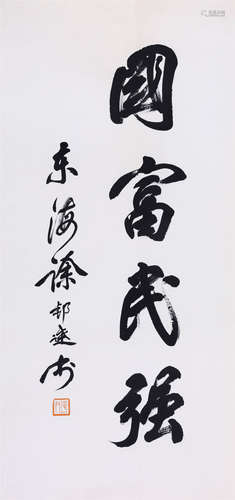 國富民强
东海徐邦达书